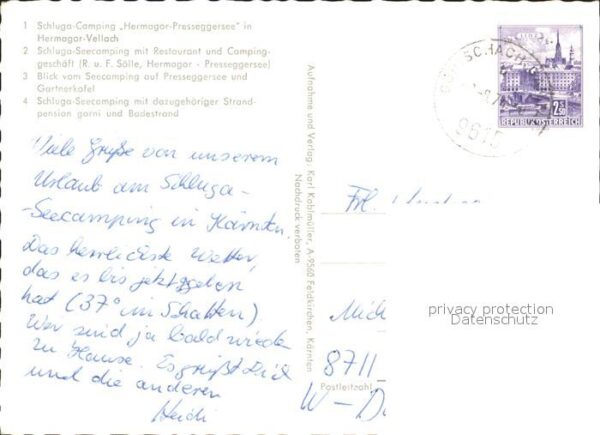 1 Schluga-Camping „Hermagor-Presseggersee" in
Hermagor-Vellach
2 Schluga-Seecamping mit Restaurant und Camping-
geschäft (R. u. F. Sölle, Hermagor - Presseggersee)
3 Blick vom Seecamping auf Presseggersee und
Gartnerkofel
4 Schluga-Seecamping mit dazugehöriger Strand-
pension garni und Badestrand
Viele Grüße von unserem
Urlaub am Schluga-
Seecamping in Kärnten.
Das herrlichste Wetter,
das es bis jetzt gegeben
hat (37° im Schatten)
Wir sind ja bald wieder
zu Hause. Es grüßt Dich
und die anderen
Heidi
Aufnahme und Verlag: Karl Kobimüller, A-9560 Feldkirchen, Kärnten
Nachdruck verboten
2.50
REPUBLIK ÖSTERREICH
9615
Frl.
privacy protection
Datenschutz
8711
Postleitzahl
W-D